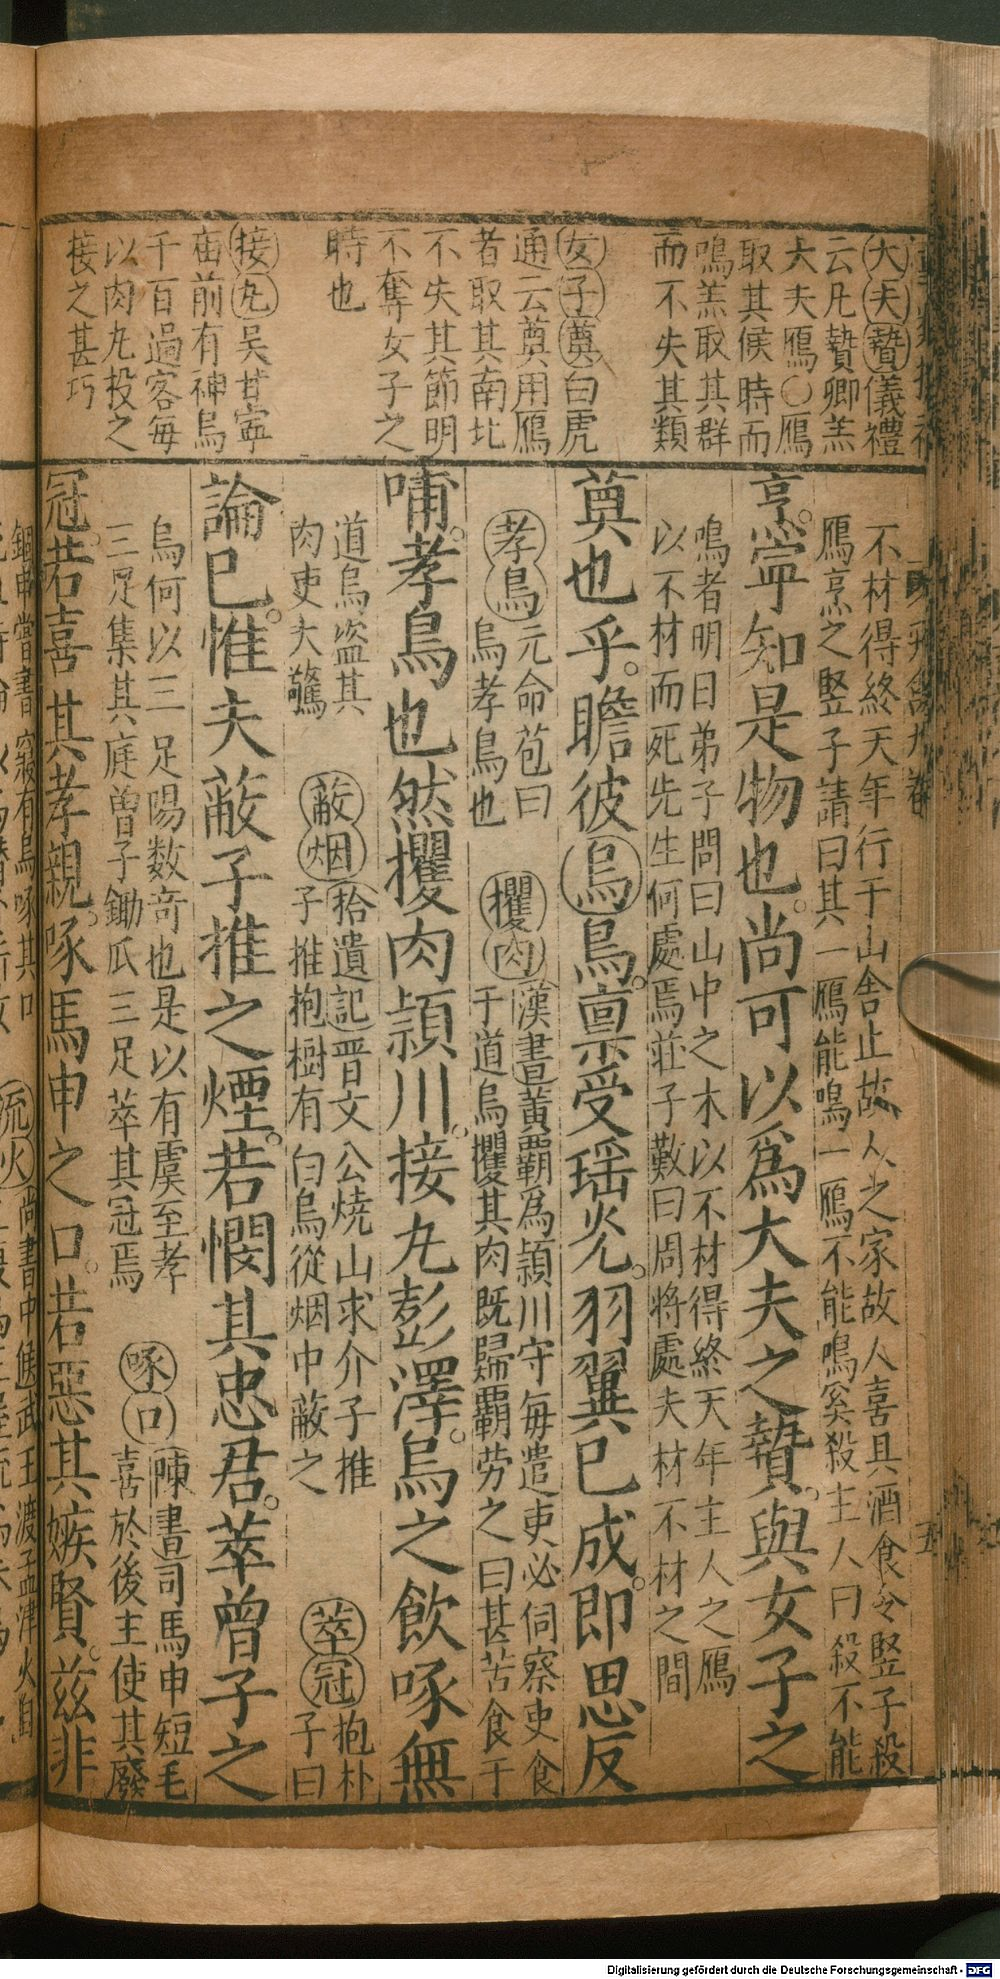 大夫贄儀禮
云凡贄卿羔
大夫鴈〇鴈
取其候時而
鳴羔取其群
而不失其類
女子奠白虎
通云奠用鴈
者取其南北
不失其節明
不奪女子之
時也
接丸吳甘寜
庙前有神烏
千百過客毎
以肉丸投之
接之甚巧
不材得終天年行于山舎止故人之家故人喜具酒食令竪子殺
鴈烹之竪子請曰其一鴈能鳴一鴈不能鳴奚殺主人曰殺不能
亨。寧知是物也。尚可以爲大夫之贄。與女子之
鳴者明日弟子問曰山中之木以不材得終天年主人之鴈
以不材而死先生何處焉莊子歎曰周将處夫材不材之間
奠也乎。瞻彼烏烏。禀受瑶光。羽翼已成。即思反
孝鳥元命苞曰
烏孝鳥也
攫肉漢書黃覇爲潁川守毎遣吏必伺察吏食
于道烏攫其肉既歸覇劳之曰甚苦食于
哺。孝鳥也然攫肉頴川。接丸彭澤。烏之飲啄無
道烏盗其
肉吏大驚
蔽烟拾遺記晋文公燒山求介子推
子推抱樹有白烏從烟中蔽之
萃冠抱朴
子曰
論已。惟夫蔽子推之煙。若憫其忠君。萃曾子之
烏何以三足陽数奇也是以有虞至孝
三足集其庭曽子鋤瓜三足萃其冠焉
啄口陳書司馬申短毛
喜於後主使其廢
冠。若喜其孝親。啄馬申之口。若惡其嫉賢。兹非
流火尚書中候武王渡孟津火自
五
Digitalisierung gefördert durch die Deutsche Forschungsgemeinschaft - DFG